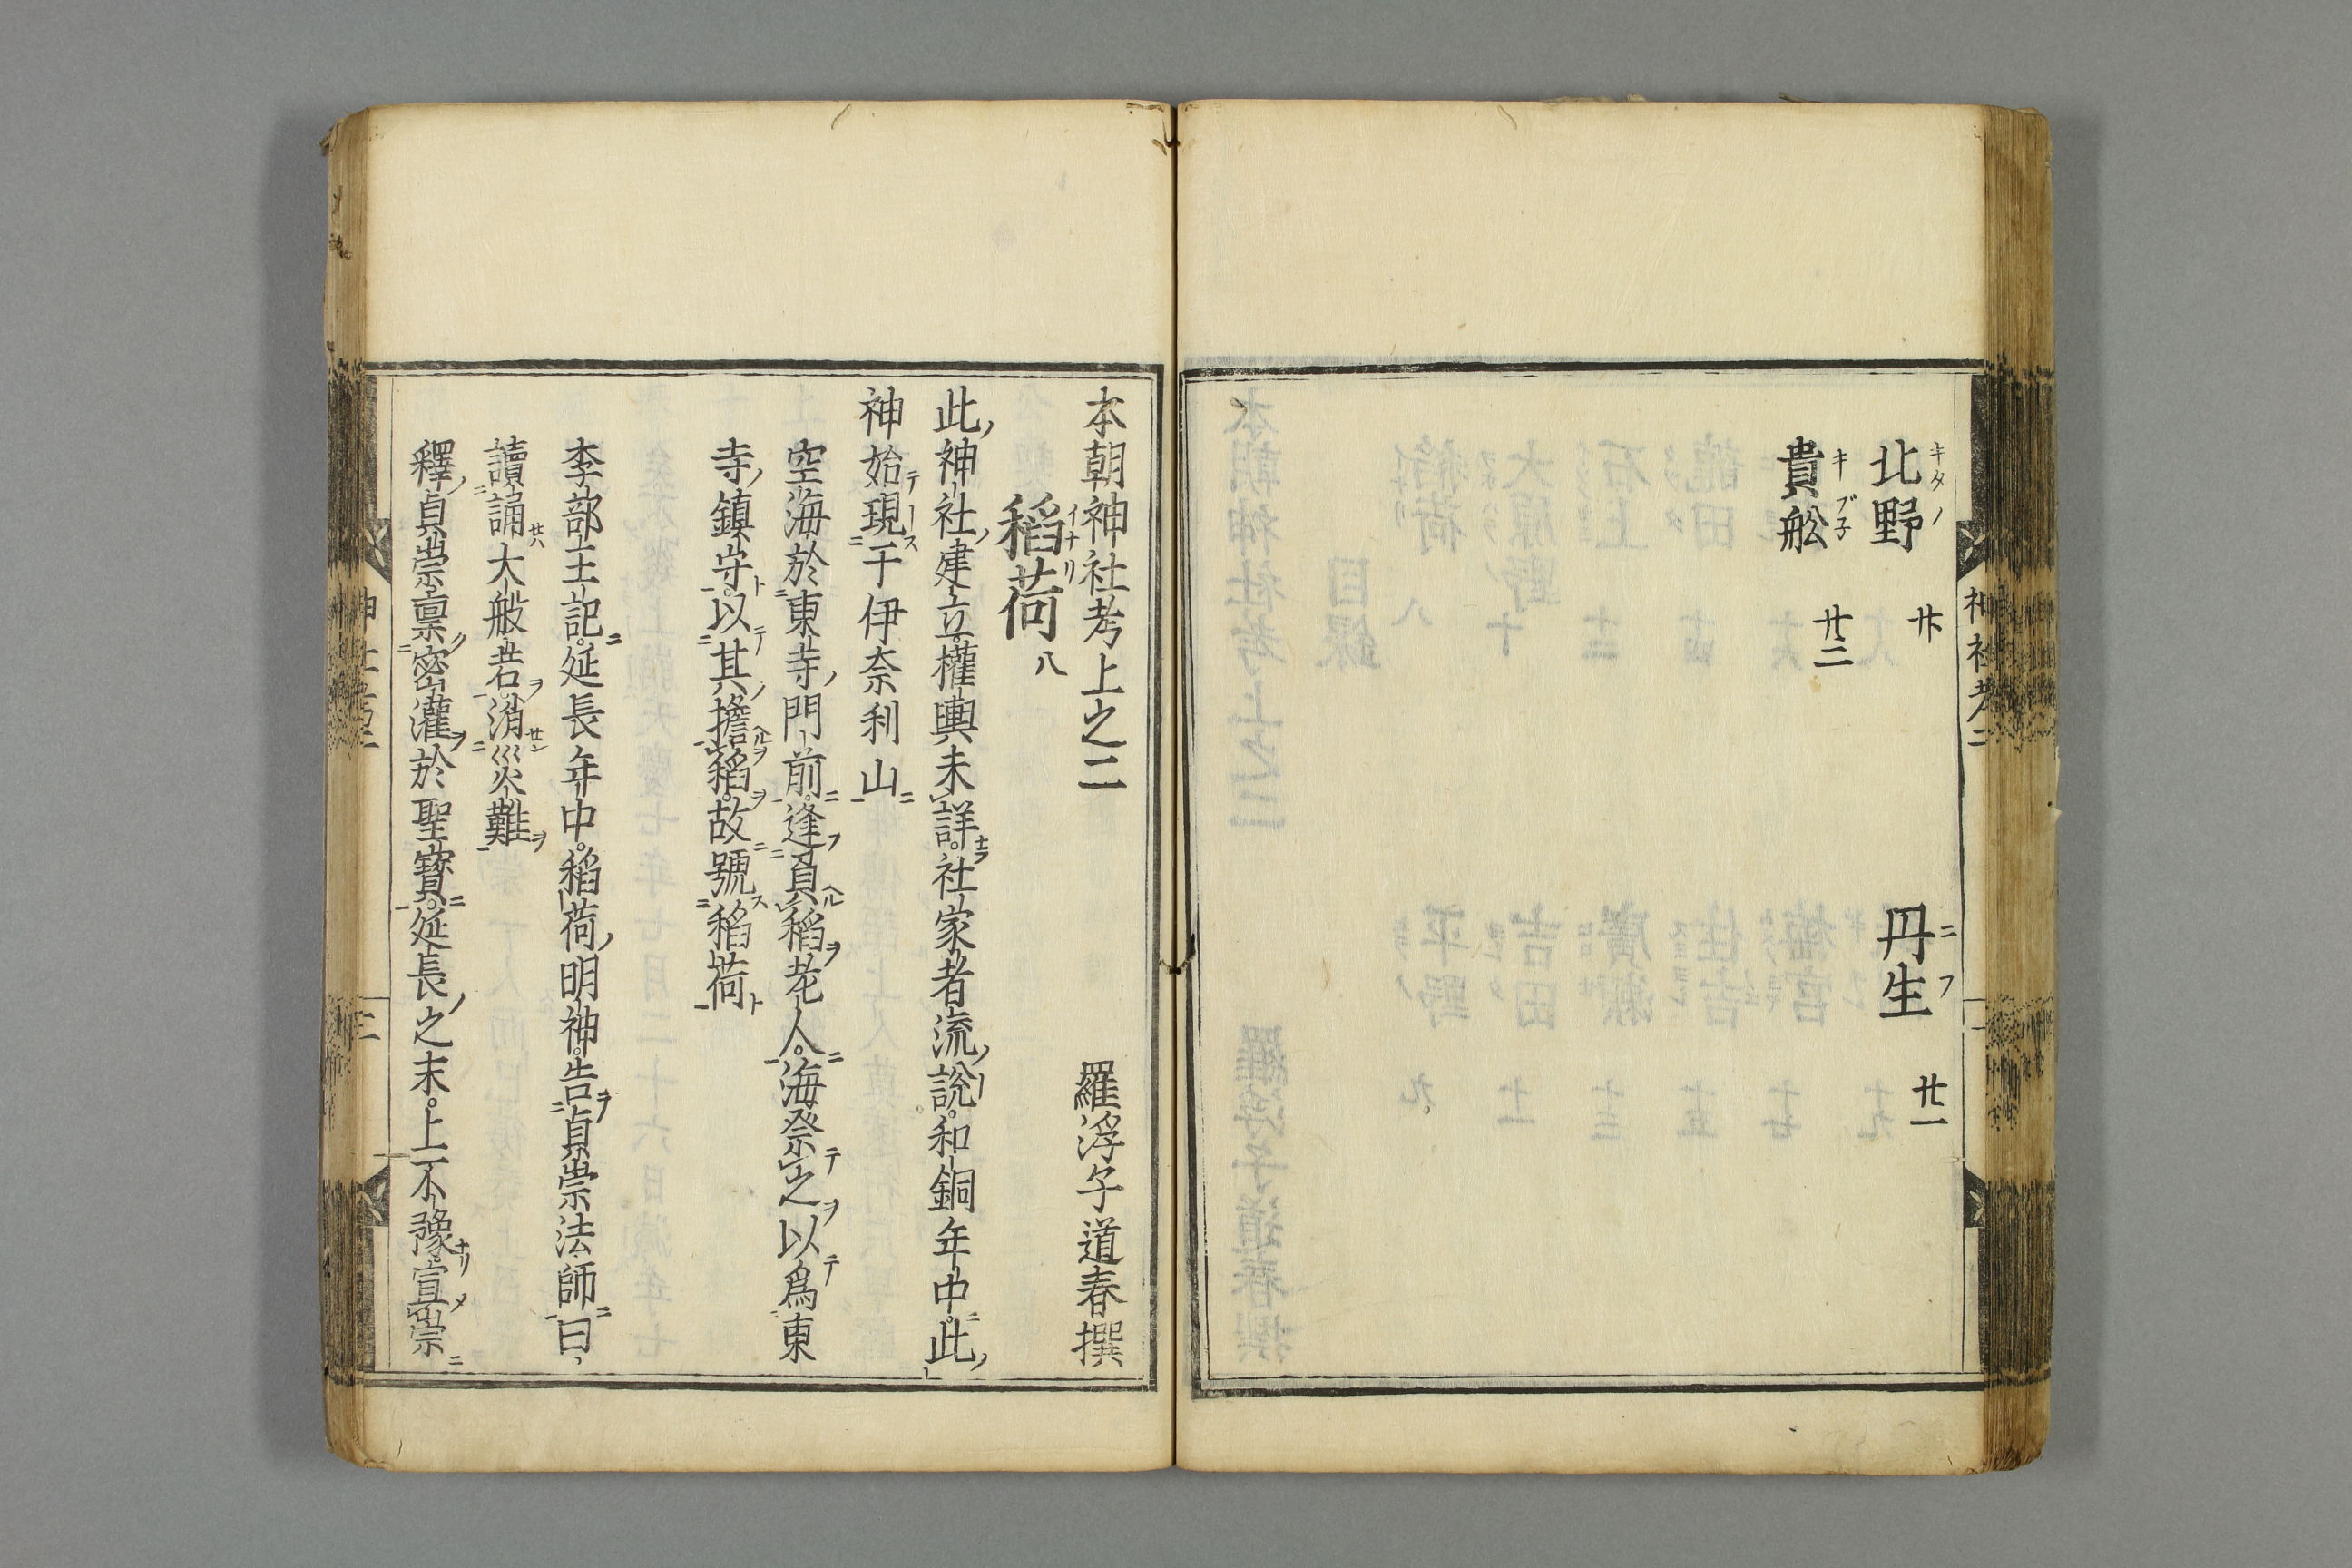 北野 廿 丹生 廿一
貴舩 廿二
神社考二
本朝神社考上之二 羅浮子道春撰
稻荷 八
此神社建立權輿未詳。社家者流說。和銅年中。此
神始現于伊奈利山
空海於東寺門前。逢負稻老人。海祭之以爲東
寺鎮守。以其擔稻。故號稻荷
李部王記。延長年中。稻荷明神。告貞崇法師曰
讀誦大般若。消災難
釋貞崇禀密灌於聖寶。延長之末。上不豫。宣崇